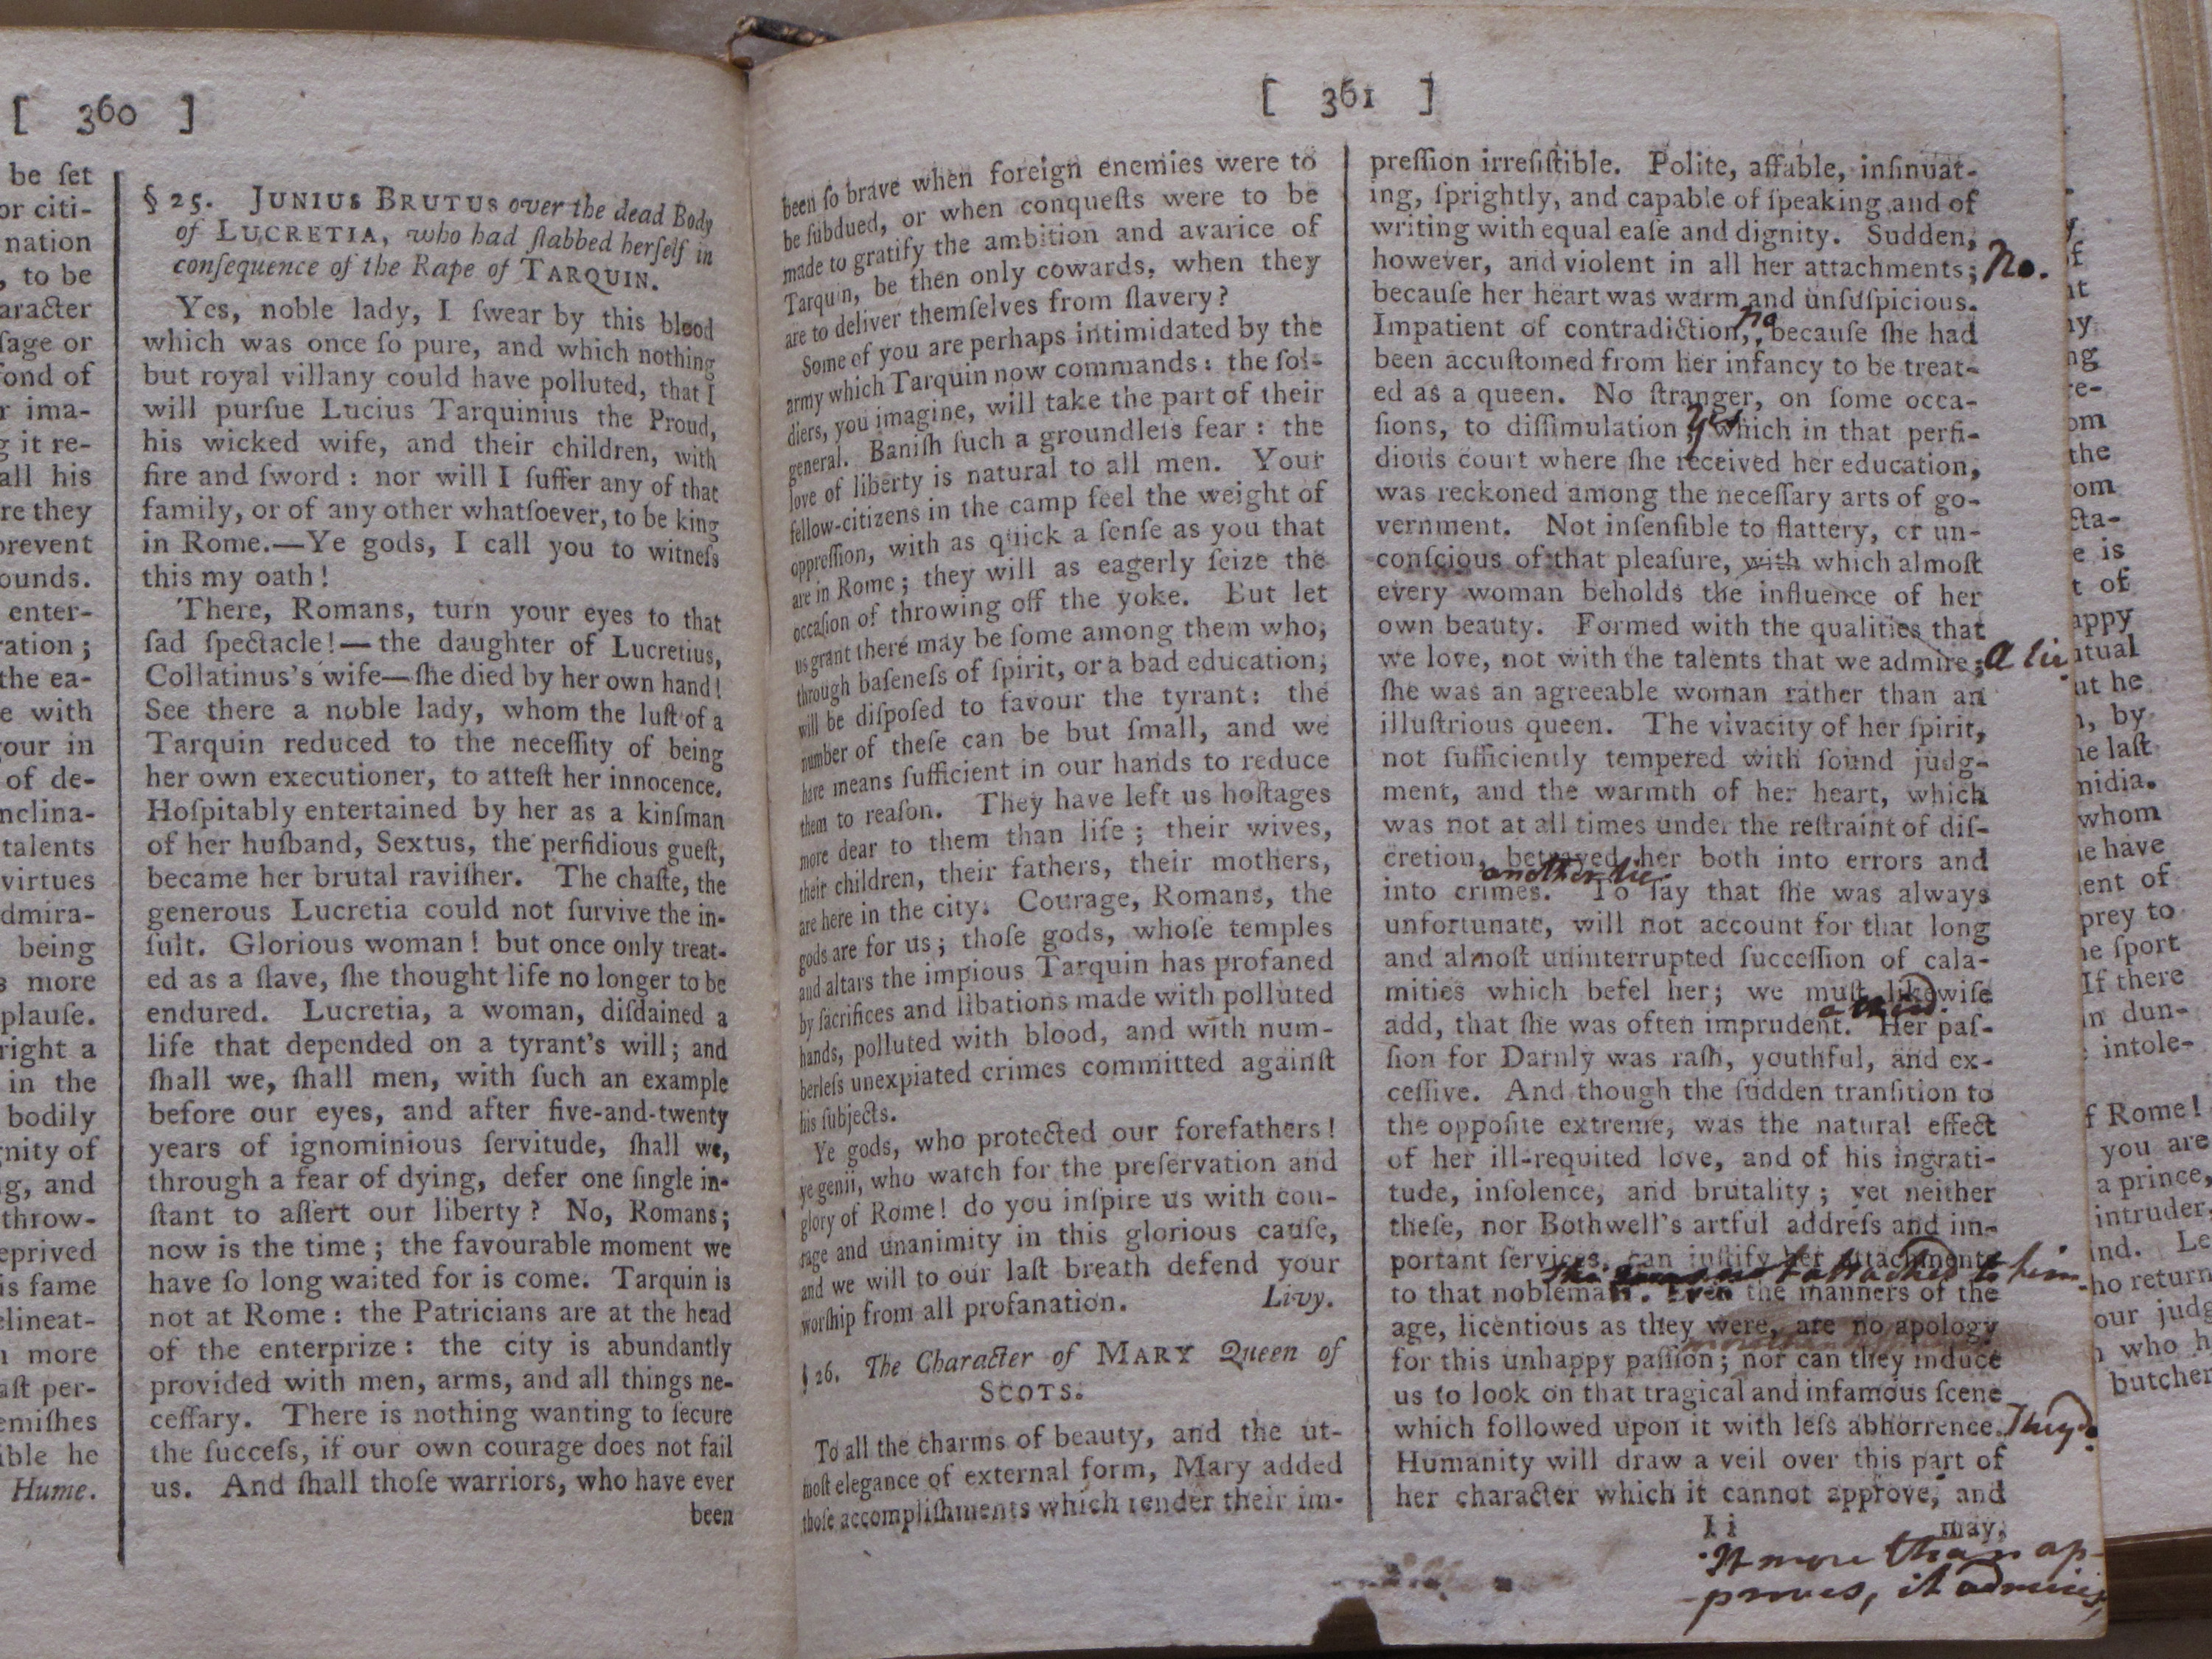 [ 360 ]
be ſet
or citi-
nation
, to be
aracter
ſage or
fond of
r ima-
g it re-
all his
re they
prevent
ounds.
enter-
ration ;
the ea-
e with
our in
of de-
nclina-
talents
virtues
dmira-
being
s more
plauſe.
right a
in the
bodily
gnity of
ng, and
throw-
eprived
is fame
elineat-
n more
aſt per-
emiſhes
ible he
Hume.
§ 25. JUNIUS BRUTUS over the dead Body
of LUCRETIA, who had ſtabbed herſelf in
conſequence of the Rape of TARQUIN.
Yes, noble lady, I ſwear by this blood
which was once ſo pure, and which nothing
but royal villany could have polluted, that I
will purſue Lucius Tarquinius the Proud,
his wicked wife, and their children, with
fire and ſword : nor will I ſuffer any of that
family, or of any other whatſoever, to be king
in Rome.—Ye gods, I call you to witneſs
this my oath !
There, Romans, turn your eyes to that
ſad ſpectacle !— the daughter of Lucretius,
Collatinus's wife—ſhe died by her own hand !
See there a noble lady, whom the luſt of a
Tarquin reduced to the neceſſity of being
her own executioner, to atteſt her innocence.
Hoſpitably entertained by her as a kinſman
of her huſband, Sextus, the perfidious gueſt,
became her brutal raviſher. The chaſte, the
generous Lucretia could not ſurvive the in-
ſult. Glorious woman ! but once only treat-
ed as a ſlave, ſhe thought life no longer to be
endured. Lucretia, a woman, diſdained a
life that depended on a tyrant's will ; and
ſhall we, ſhall men, with ſuch an example
before our eyes, and after five-and-twenty
years of ignominious ſervitude, ſhall we,
through a fear of dying, defer one ſingle in-
ſtant to aſſert our liberty ? No, Romans ;
now is the time ; the favourable moment we
have ſo long waited for is come. Tarquin is
not at Rome : the Patricians are at the head
of the enterprize : the city is abundantly
provided with men, arms, and all things ne-
ceſſary. There is nothing wanting to ſecure
the ſucceſs, if our own courage does not fail
us. And ſhall thoſe warriors, who have ever
been
[ 361 ]
been ſo brave when foreign enemies were to
be ſubdued, or when conqueſts were to be
made to gratify the ambition and avarice of
Tarquin, be then only cowards, when they
are to deliver themſelves from ſlavery ?
Some of you are perhaps intimidated by the
army which Tarquin now commands : the ſol-
diers, you imagine, will take the part of their
general. Baniſh ſuch a groundleſs fear : the
love of liberty is natural to all men. Your
fellow-citizens in the camp feel the weight of
oppreſſion, with as quick a ſenſe as you that
are in Rome ; they will as eagerly ſeize the
occaſion of throwing off the yoke. But let
us grant there may be ſome among them who,
through baſeneſs of ſpirit, or a bad education,
will be diſpoſed to favour the tyrant : the
number of theſe can be but ſmall, and we
have means ſufficient in our hands to reduce
them to reaſon. They have left us hoſtages
more dear to them than life ; their wives,
their children, their fathers, their mothers,
are here in the city. Courage, Romans, the
gods are for us ; thoſe gods, whoſe temples
and altars the impious Tarquin has profaned
by ſacrifices and libations made with polluted
hands, polluted with blood, and with num-
berleſs unexpiated crimes committed againſt
his ſubjects.
Ye gods, who protected our forefathers !
ye genii, who watch for the preſervation and
glory of Rome ! do you inſpire us with cou-
rage and unanimity in this glorious cauſe,
and we will to our laſt breath defend your
worſhip from all profanation. Livy.
§ 26. The Character of MARY Queen of
SCOTS.
To all the charms of beauty, and the ut-
moſt elegance of external form, Mary added
thoſe accompliſhments which render their im-
preſſion irreſiſtible. Polite, affable, inſinuat-
ing, ſprightly, and capable of ſpeaking and of
writing with equal eaſe and dignity. Sudden,
however, and violent in all her attachments ; No.
becauſe her heart was warm and unſuſpicious.
no
Impatient of contradiction, becauſe ſhe had
been accuſtomed from her infancy to be treat-
ed as a queen. No ſtranger, on ſome occa-
yes
ſions, to diſſimulation ; which in that perfi-
dious court where ſhe received her education,
was reckoned among the neceſſary arts of go-
vernment. Not inſenſible to flattery, or un-
conſcious of that pleaſure, with which almoſt
every woman beholds the influence of her
own beauty. Formed with the qualities that
we love, not with the talents that we admire ; A lie
ſhe was an agreeable woman rather than an
illuſtrious queen. The vivacity of her ſpirit,
not ſufficiently tempered with ſound judg-
ment, and the warmth of her heart, which
was not at all times under the reſtraint of diſ-
cretion, betrayed her both into errors and
another lie
into crimes. To ſay that ſhe was always
unfortunate, will not account for that long
and almoſt uninterrupted ſucceſſion of cala-
mities which befel her ; we muſt likewiſe
a third.
add, that ſhe was often imprudent. Her paſ-
ſion for Darnly was raſh, youthful, and ex-
ceſſive. And though the ſudden tranſition to
the oppoſite extreme, was the natural effect
of her ill-requited love, and of his ingrati-
tude, inſolence, and brutality ; yet neither
theſe, nor Bothwell's artful addreſs and im-
portant ſervices, can juſtify her attachment
she was not attached to him
to that nobleman. Even the manners of the
age, licentious as they were, are no apology
for this unhappy paſſion ; nor can they induce
us to look on that tragical and infamous ſcene
which followed upon it with leſs abhorrence. They do
Humanity will draw a veil over this part of
her character which it cannot approve, and
I i may,
It more than ap-
proves, it admires,
f
nt
ny
ng
re-
om
the
om
cta-
e is
t of
appy
utual
ut he
n, by
he laſt
midia.
whom
he have
ent of
prey to
he ſport
If there
in dun-
intole-
f Rome !
you are
a prince,
intruder,
nd. Le
ho return
our judg
who h
butcher